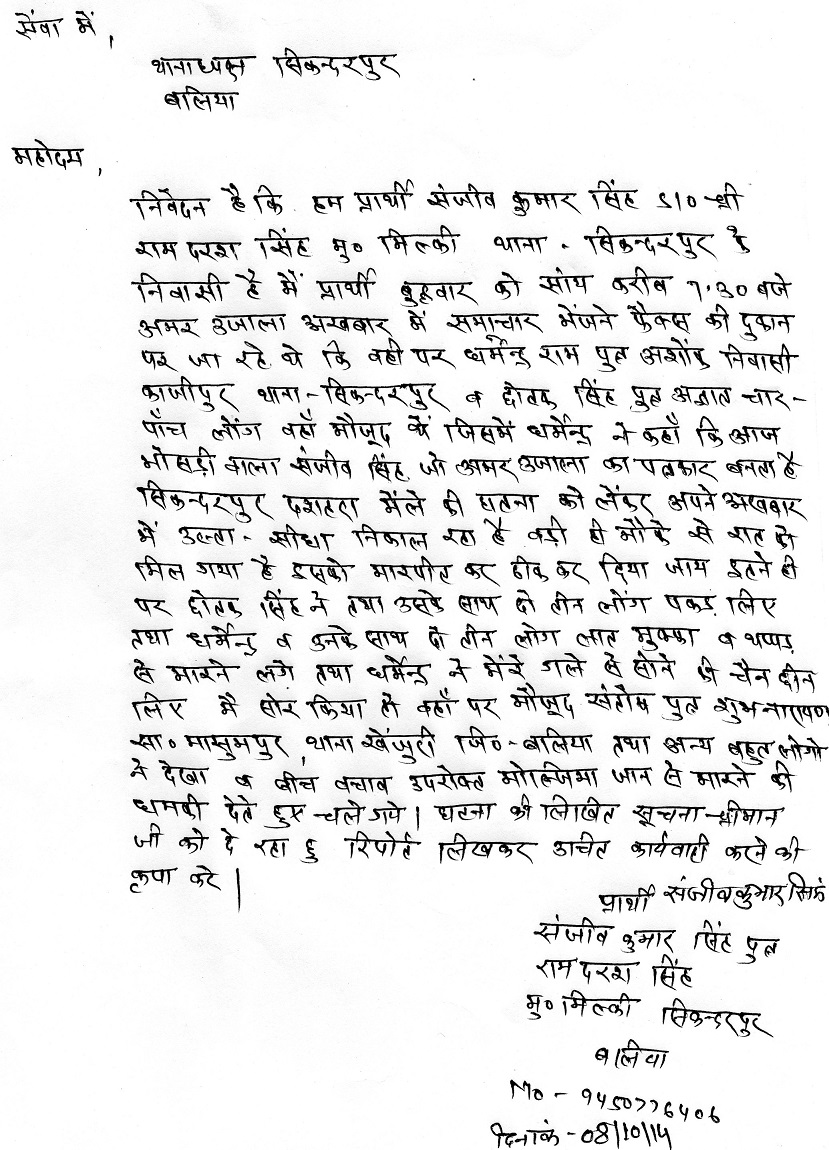 सेवा में,
थानाध्यक्ष सिकन्दरपुर
बलिया
महोदय,
निवेदन है कि हम प्रार्थी संजीव कुमार सिंह S/O श्री
राम दरश सिंह मु० मिल्की थाना - सिकन्दरपुर के
निवासी है मैं प्रार्थी बुद्धवार को सांय करीब 7.30 बजे
अमर उजाला अखबार में समाचार भेंजने फैक्स की दुकान
पर जा रहे थे कि वही पर धर्मेन्द्र राम पुत्र अशोक निवासी
काजीपुर थाना - सिकन्दरपुर व छोटक सिंह पुत्र अज्ञात चार-
पाँच लोंग वहाँ मौजूद थे जिसमें धर्मेन्द्र ने कहाँ कि आज
भोसड़ी वाला संजीव सिंह जो अमर उजाला का पत्रकार बनता है
सिकन्दरपुर दशहरा मेंले की घटना को लेंकर अपने अखबार
में उल्टा - सीधा निकाल रहा है बड़ी ही मौके से रात को
मिल गया है इसको मारपीट कर ठीक कर दिया जाय इतने ही
पर छोटक सिंह ने तथा उसके साथ दो तीन लोंग पकड़ लिए
तथा धर्मेन्द्र व उनके साथ दो तीन लोग लात मुक्का व थप्पड़
से मारने लगे तथा धर्मेन्द्र ने मेंरे गले से सोने की चैन छीन
लिए मै सोर किया तो वहाँ पर मौजूद संतोष पुत्र शुभनारायण
सा० मासुमपुर थाना खेंजुरी जि० - बलिया तथा अन्य बहुत लोगो
ने देखा व बीच बचाव उपरोक्त जान से मारने की
धमकी देते हुए चले गये। घटना की लिखित सूचना श्रीमान
जी को दे रहा हु रिपोर्ट लिखकर उचित कार्यवाही करने की
कृपा करे।
प्रार्थी संजीव कुमार सिंह
संजीव कुमार सिंह पुत्र
राम दरश सिंह
मु० मिल्की सिकन्दरपुर
बलिया
Mo - 9450776406
दिनांक - 08/10/14